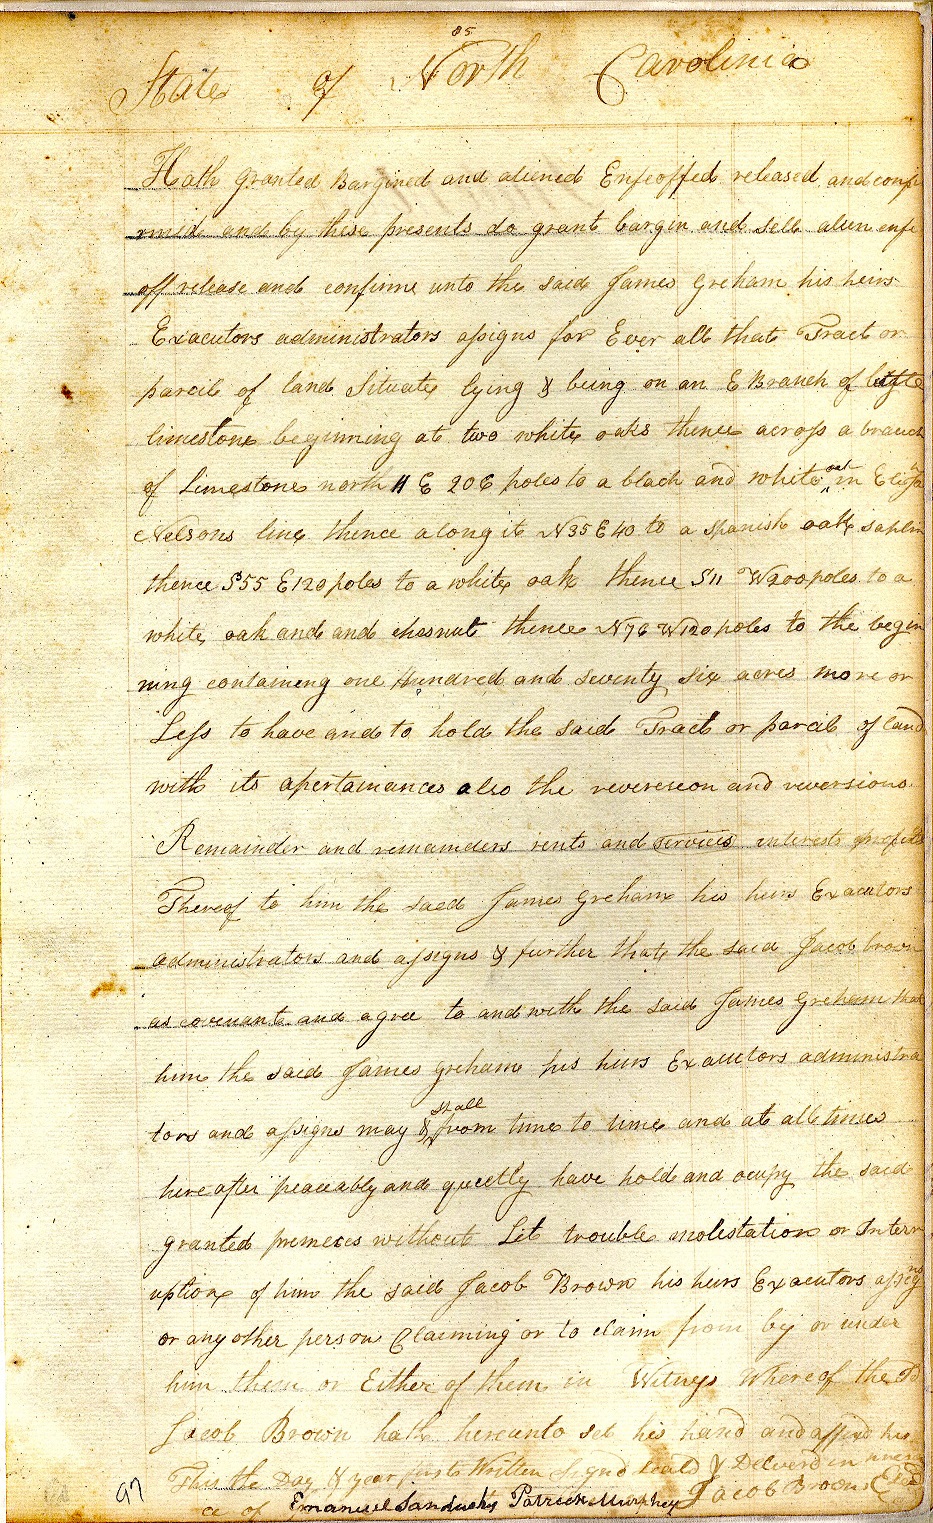 85
State of North Carolinia
Hath granted Bargined and aliened Enfeoffed released and confi
rmid and by these presents do grant bargin and sell alien enfe
off release and confirme unto the said James Greham his heirs
Exacutors administrators assigns for Ever all that Tract or
parcil of land Situate lying & being on an E Branch of little
limestone beginning at two white oaks thence across a branch
of Limestone north 11 E 206 poles to a black and white oak in
Nelsons line thence along it N35 E 40 to a spanish oak saplin
thence S55 E120 poles to a white oak thence S11 W200 poles to a
white oak and and chesnut thence N76 W120 poles to the begin
ning containing one Hundred and seventy six acres more or
Less to have and to hold the said Tract or parcil of land
with its apertainances also the revereseon and reversions
Remainder and remainders rents and services interests profits
Thereof to him the saed James Greham his heirs Exacutors
administrators and assigns & further that the said Jacob brown
as covenant and agree to and with the said James Greham that
him the said James Greham his heirs Exacutors administra
tors and assigns may & shall from time to time and at all times
hereafter peaceably and quietly have hold and ocupy the said
granted premeces without Let trouble molestation or Interr
uption of him the said Jacob Brown his heirs Exacutors assigns
or any other person Claiming or to claim from by or under
him them or Either of them in Witness Whereof the Sd
Jacob Brown hath hereunto set his hand and affixd his
This the Day & year first Written Signd seald & Deliverd in presen
ce of Emanuel Sandusky Patrick Murphey Jacob Brown
97